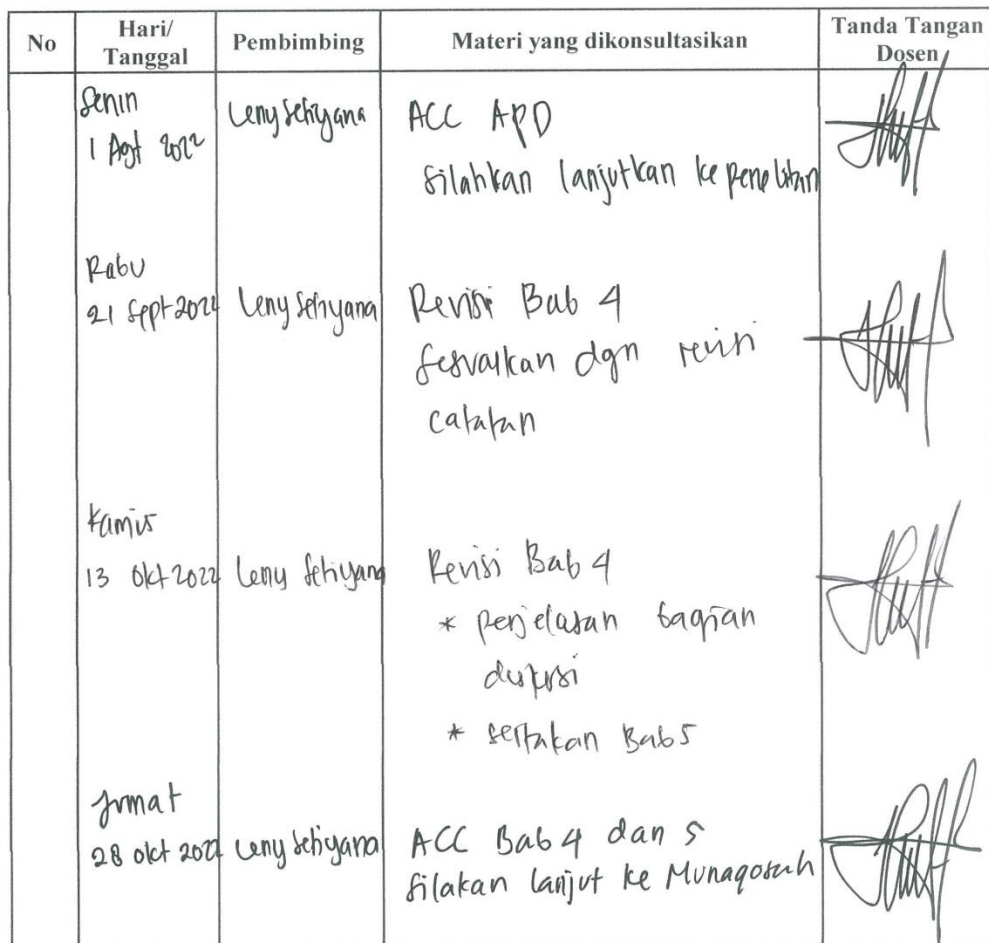 No
Hari/
Tanggal
Pembimbing
Materi yang dikonsultasikan
Tanda Tangan
Dosen
Senin
1 Agt 2022
Leny Setiyana
ACC APD
silahkan lanjutkan ke penelitian
Rabu
21 Sept 2022
Leny Setiyana
Revisi Bab 4
sesuaikan dgn revisi
catatan
Kamis
13 Okt 2022
Leny Setiyana
Revisi Bab 4
* penjelasan bagian
diskusi
* sertakan Bab 5
Jumat
28 okt 2022
Leny Setiyana
ACC Bab 4 dan 5
Silakan lanjut ke Munaqosah